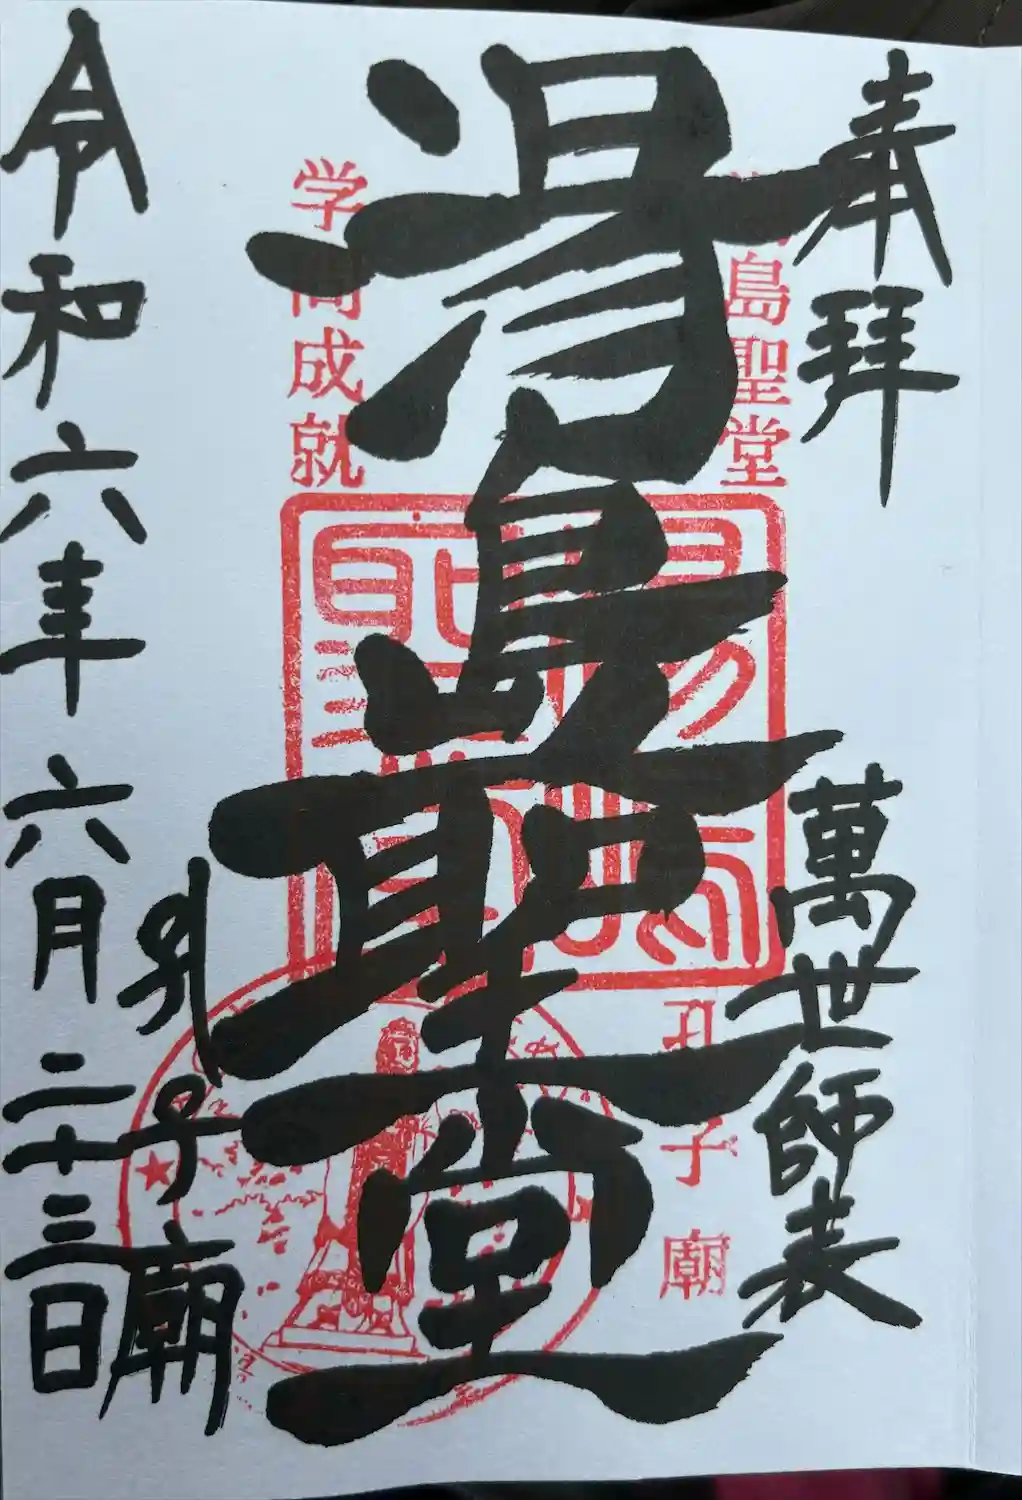 奉拝
萬世師表
湯島聖堂
湯島聖堂
孔子廟
学問成就
孔子廟
令和六年六月二十三日